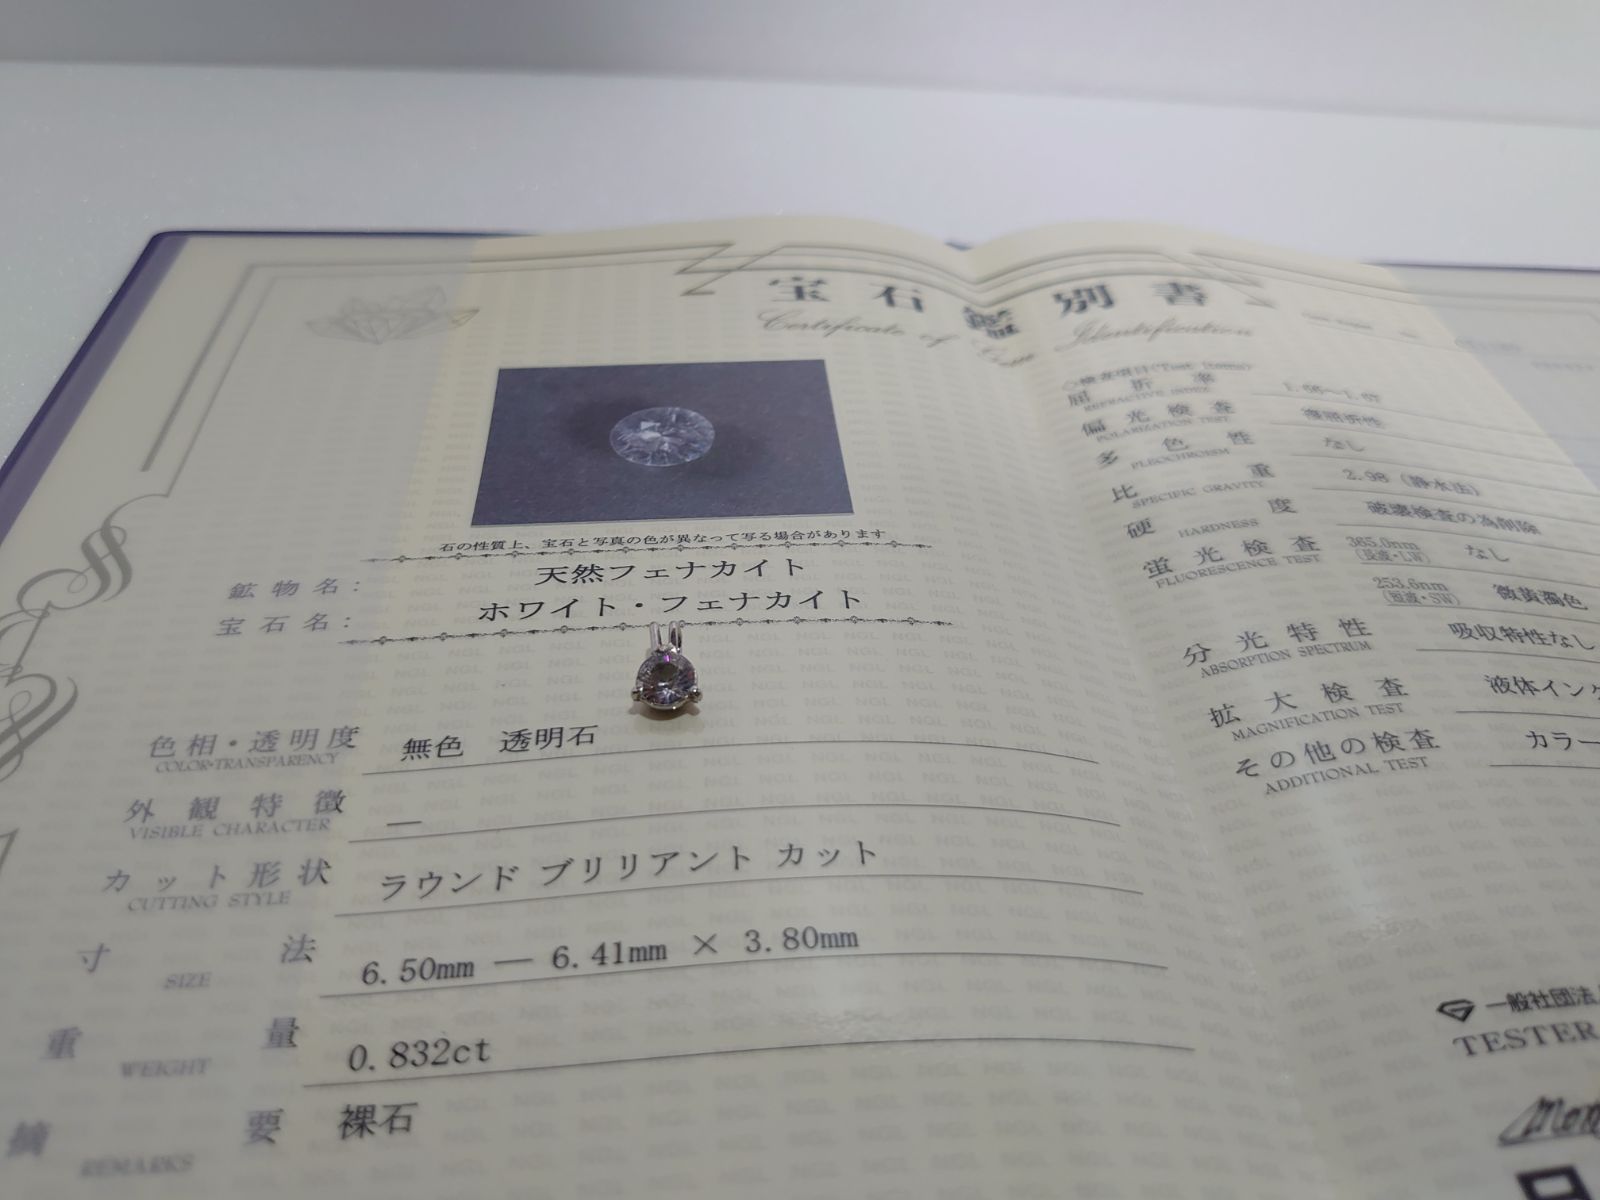 宝石鑑別書
Certificate of Gem Identification
石の性質上、宝石と写真の色が異なって写る場合があります
鉱物名： 天然フェナカイト
宝石名： ホワイト・フェナカイト
色相・透明度 無色 透明石
COLOR・TRANSPARENCY
外観特徴 —
VISIBLE CHARACTER
カット形状 ラウンド ブリリアント カット
CUTTING STYLE
寸法 6.50mm — 6.41mm × 3.80mm
SIZE
重量 0.832ct
WEIGHT
摘要 裸石
REMARKS
○検査項目(Test Items)
屈折率 1.66~1.67
REFRACTIVE INDEX
偏光検査 複屈折性
POLARIZATION TEST
多色性 なし
PLEOCHROISM
比重 2.98 (静水法)
SPECIFIC GRAVITY
硬度 破壊検査の為削除
HARDNESS
蛍光検査 365.0nm (長波・LW) なし
FLUORESCENCE TEST
253.6nm (短波・SW) 微黄濁色
分光特性 吸収特性なし
ABSORPTION SPECTRUM
拡大検査 液体イン
MAGNIFICATION TEST
その他の検査 カラー
ADDITIONAL TEST
一般社団法
TESTER